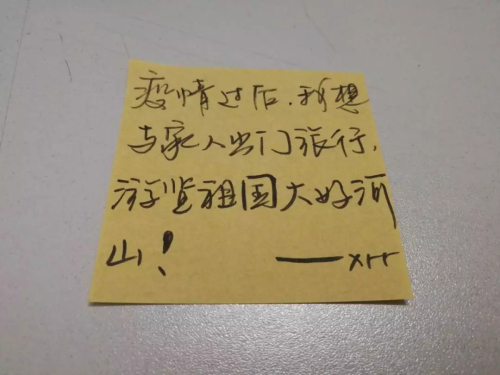 疫情过后,我想
与家人出门旅行,
游览祖国大好河
山!——xrr